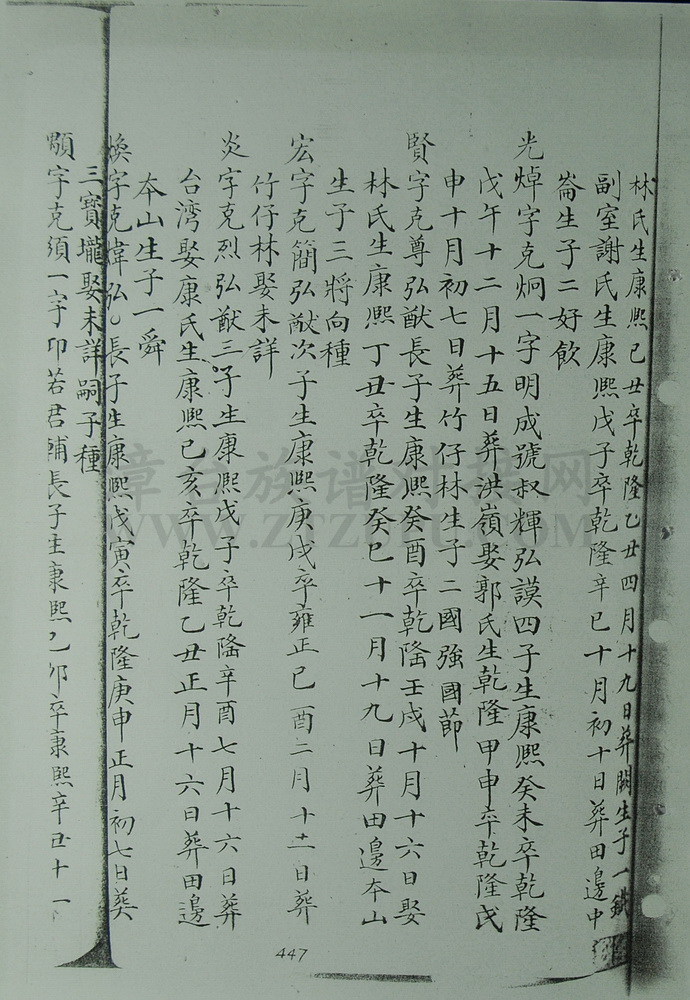 林氏生康熙己丑卒乾隆乙丑四月十九日葬闕生子一
副室謝氏生康熙戊子卒乾隆辛巳十月初十日葬田邊中
崙生子二好飲
光焯字克炯一字明成號叔輝弘謨四子生康熙癸未卒乾隆
戊午十二月十五日葬洪嶺娶郭氏生乾隆甲申卒乾隆戊
申十月初七日葬竹仔林生子二國強國節
賢字克尊弘猷長子生康熙癸酉卒乾隆壬戌十月十六日娶
林氏生康熙丁丑卒乾隆癸巳十一月十九日葬田邊本山
生子三將向種
宏字克簡弘猷次子生康熙庚戌卒雍正己酉二月十二日葬
竹仔林娶未詳
炎字克烈弘猷三子生康熙戊子卒乾隆辛酉七月十六日葬
台湾娶康氏生康熙己亥卒乾隆乙丑正月十六日葬田邊
本山生子一舜
煥字克偉弘長子生康熙戊寅卒乾隆庚申正月初七日葬
三寶壠娶未詳嗣子種
顒字克須一字印若君輔長子生康熙乙卯卒康熙辛丑十一
447
章子族谱 网
WWW.ZTZUPU.COM